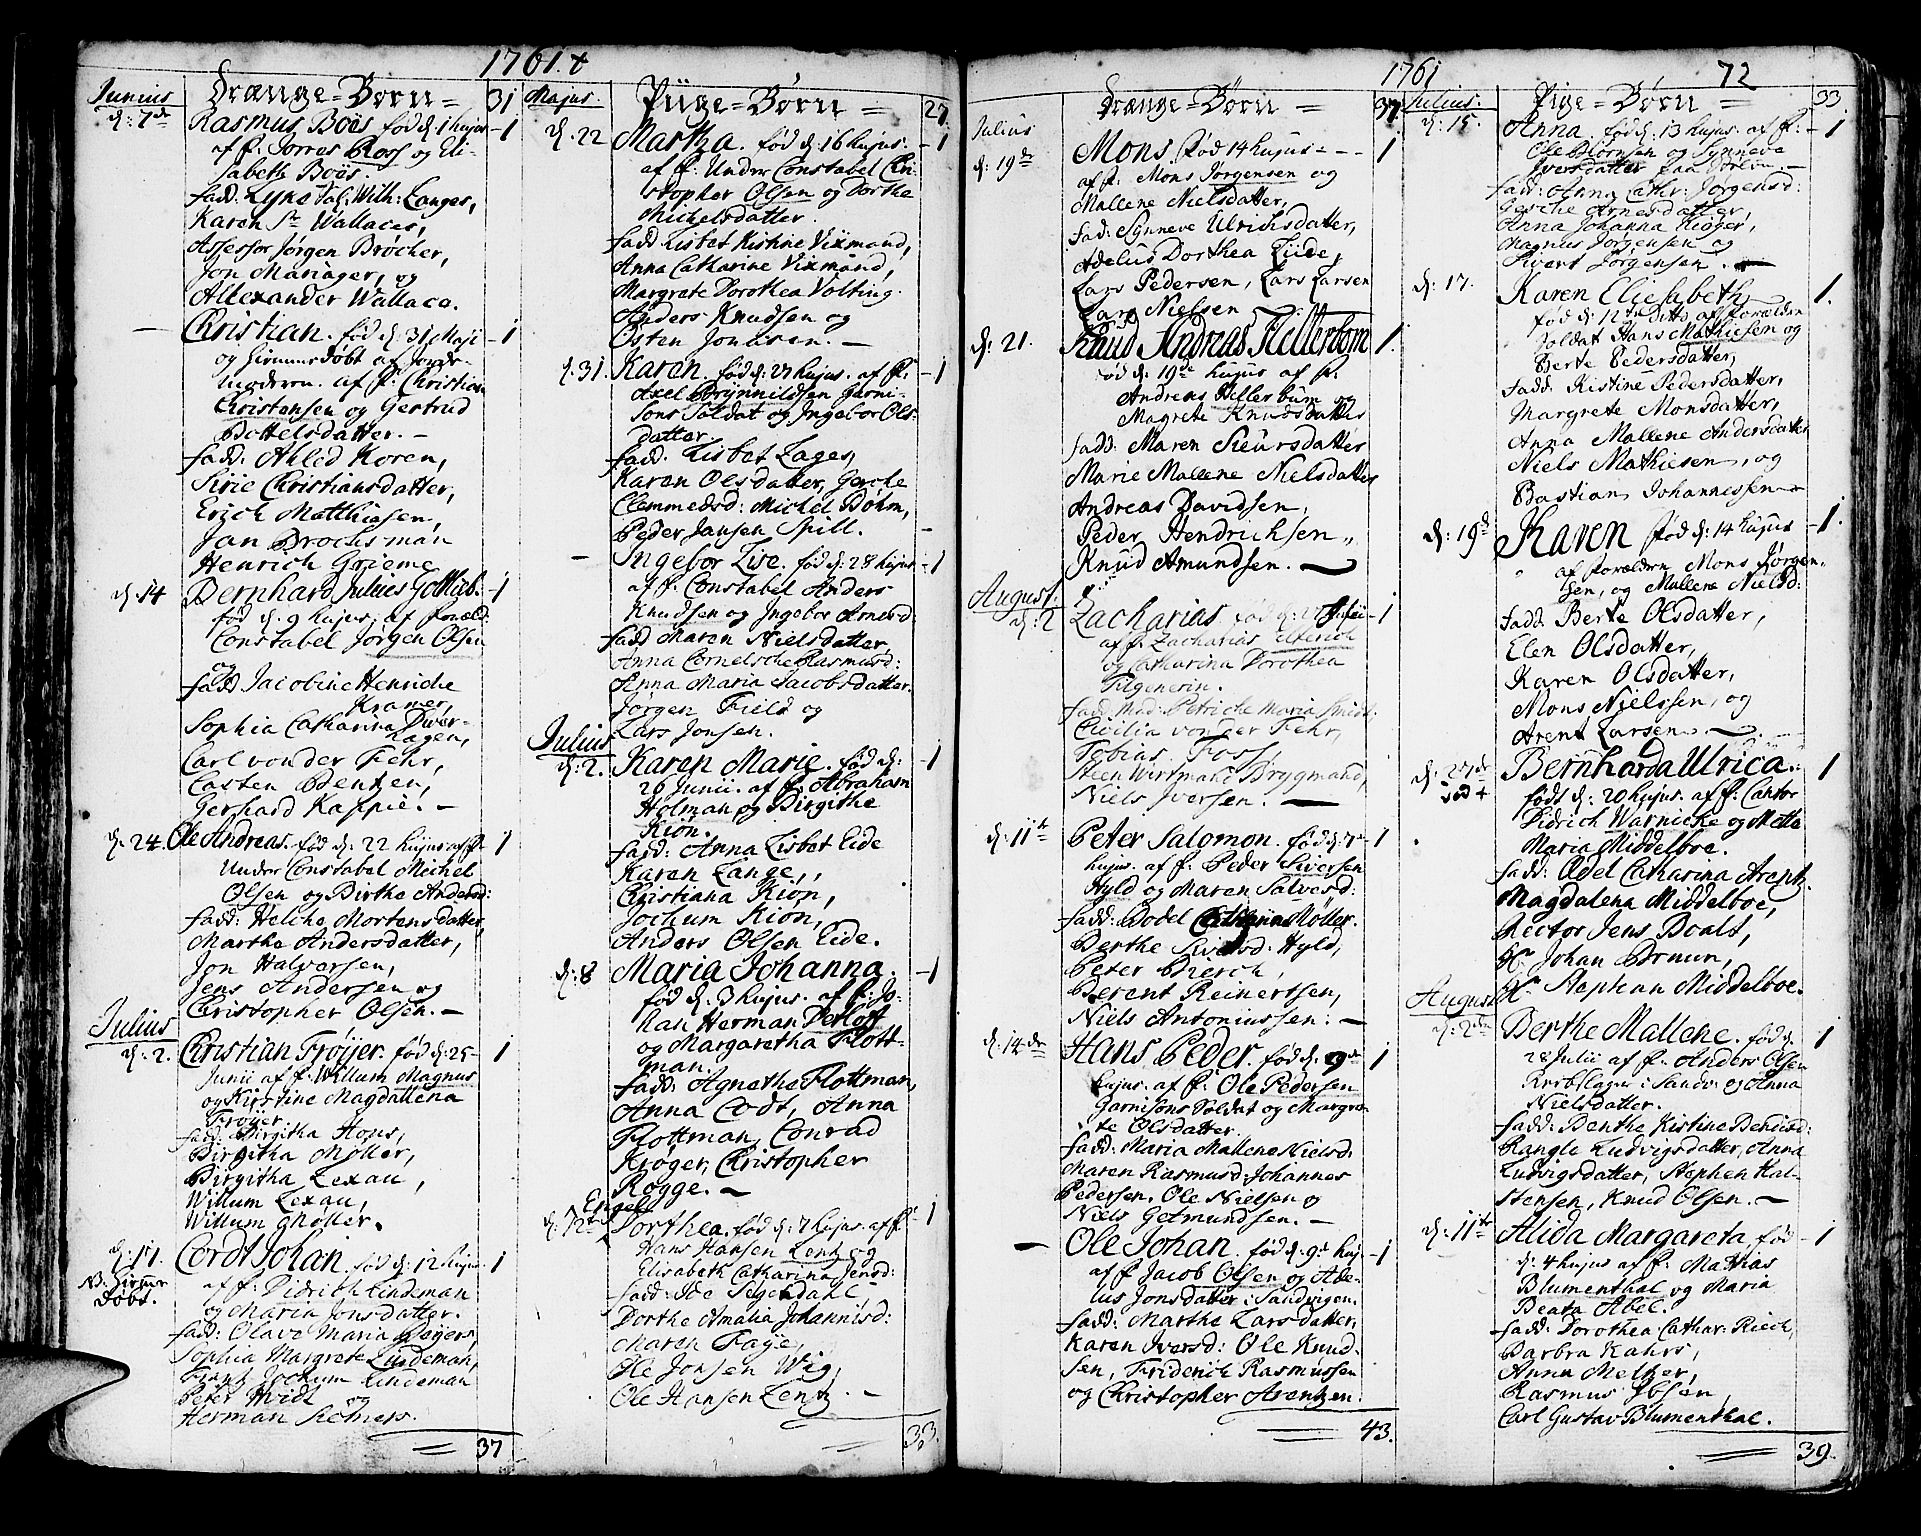 1761
Junius
Drænge=Børn=
31
d: 7de
Rasmus Boës fød d: 1 hujus - 1
af f. Torres Ross og Eli-
sabeth Boës.
fadd: Lyne Sal: Wilh: Langes,
Karen Sr Wallaces,
Assessor Jørgen Brøcher,
Jon Mariager, og
Allexander Wallace.
Christian. fød d: 31 Maji - 1
og hiemmedøbt af Jorde-
moderen. af f. Christian
Christensen og Gertrud
Bottelsdatter. -
fadd: Ahled Koren,
Sirie Christiansdatter,
Erich Matthiasen,
Jan Brochsman
Henrich Grieme
d. 14 Bernhard Julius Gottlieb. - 1
fød d. 9 hujus. af Foræld:
Constabel Jørgen Olsen
og
fadd Jacobine Henriche
Kramer,
Sophia Catharina Dwer-
hagen,
Carl von der Fehr,
Casten Bentzen,
Gerhard Kappie. -
d: 24. Ole Andreas. fød d: 22 hujus af f. 1
Under Constabel Michel
Olsen og Birthe Andersd:
fadd: Helche Mortensdatter,
Marthe Andersdatter,
Jon Halvorsen,
Jens Andersen og
Christopher Olsen. -
Julius
d: 2. Christian Frøijer. fød d: 25 - 1
Junii af f. Willum Magnus
og Kirstine Magdallena
Frøijer.
fad: Birgitha Hons,
Birgitha Møller,
Birgitha Lexau,
Willum Lexau,
Willum Møller.
d: 17. Cordt Johan. fød d: 12 hujus. 1
NB. hiemme
døbt.
af f: Didrich Lindeman
og Maria Jonsdatter.
fadd: Olave Maria Bøgers,
Sophia Margrete Lindeman,
Frantz Jochum Lindeman
Peter Hvidt og
Herman Rømers.
37
Majus.
Piige=Børn=
27.
d. 22 Martha. fød d: 16 hujus. - 1
af f. Under Constabel Chri-
stopher Olsen og Dorthe
Michelsdatter.
fadd Lisbet Kistine Vixmand,
Anna Catharine Vixmand,
Margrete Dorothea Volting.
Anders Knudsen og
Østen Jonasen. -
d. 31. Karen. fød d: 27 hujus. af f. - 1
Axel Brynnildsen Garni-
sons Soldat og Ingebor Ols-
datter.
fadd. Lisbet Lages,
Karen Olsdatter, Gerche
Clemmedsd: Michel Bøhm,
Peder Jansen Spill.
- Ingebor Lise. fød d: 28 hujus - 1
af f. Constabel Anders
Knudsen og Ingebor Arnesd:
fadd Maren Nielsdatter,
Anna Cornelsche Rasmusd:
Anna Maria Jacobsdatter.
Jørgen Field og
Lars Jonsen.
Julius
d: 2. Karen Marie. fød d: - 1
26 Junii. af f. Abraham
Holman og Birgithe
Kion.
fadd: Anna Lisbet Eide
Karen Lange,
Christiana Kion,
Jochum Kion,
Anders Olsen Eide.
d: 8 Maria Johanna. - 1
fød d. 3 hujus. af f. Jo-
han Herman Derloff
og Margaretha Flott-
man.
fadd: Agnethe Flottman,
Anna Codt, Anna
Flottman, Conrad
Krøger, Christopher
Rogge. -
Engel
d: 12te Dorthea. fød d: 7 hujus. af f. - 1
Hans Hansen Lentz og
Elisabeth Catharina Jensd:
fadd: Ide Segerdahl,
Dorthe Amalia Johannisd:
Maren Faye,
Ole Jonsen Wig,
Ole Hansen Lentz. -
33.
1761
72
Julius
Drænge=Børn=
37.
d: 19de Mons fød 14 hujus - - - 1
af f. Mons Jørgensen og
Mallene Nielsdatter,
fad: Synneve Ulrichsdatter,
Adelus Dorthea Lude,
Lars Pedersen, Lars Larsen
Lars Nielsen
d: 21. Knud Andreas Hellerbom 1.
fød d: 19de hujus af f.
Andreas Hellerbum og
Magrete Knudsdatter
fadd: Maren Siursdatter
Marie Mallene Nielsdatter
Andreas Davidsen,
Peder Hendrichsen,
Knud Amundsen. -
August.
d: 2 Zacharias fød d: 27 Julii - 1
af f. Zacharias Ulterich
og Catharina Dorothea
Filgenerin.
fadd Mad: Petriche Maria Smidt:
Cicilia von der Fehr,
Tobias Foss,
Steen Wirtmand Brygmand,
Niels Iversen. -
d: 11te Peter Salomon. fød d: 7de 1
hujus. af f. Peder Siversen
Hyld og Maren Salvesd:
fadd: Bodel Cathrina Møller.
Berthe Siversd: Hyld,
Peter Bierch,
Berent Reinertsen,
Niels Antoniussen. -
d: 14de Hans Peder. fød d. 9de 1
hujus. af f: Ole Pedersen
Garnisons Soldat og Margre-
te Olsdatter.
fadd: Maria Mallene Nielsd.
Maren Rasmusd: Johannes
Pedersen, Ole Nielsen og
Niels Getmundsen. -
- Ole Johan. fød d: 9de huj. - 1
af f. Jacob Olsen og Ade-
lus Jonsdatter i Sandvigen.
fadd: Marthe Larsdatter,
Karen Iversd: Ole Knud-
sen, Friderich Rasmussen
og Christopher Arentzen.
43.
Julius.
Pige=Børn=
33
d: 15. Anna. fød d: 13 hujus. af f: - 1
Ole Biørnsen og Synneve
Iversdatter
fadd: Anna Cathr: Jørgensd:
Gesche Arnesdatter,
Anna Johanna Kiøger,
Magnus Jørgensen og
Sivert Jørgensen. -
d: 17. Karen Eliesabeth 1.
fød d: 12te ditto af Forældre
Soldat Hans Mathiesen og
Berte Pedersdatter,
fadd: Kistine Pedersdatter,
Margrete Monsdatter,
Anna Mallene Andersdatter
Niels Mathiesen, og
Bastian Johannessen
d: 19d Karen fød d: 14 hujus - 1.
af Forældre Mons Jørgen-
sen, og Mallene Nielsd:
fadd. Berte Olsdatter,
Elen Olsdatter,
Karen Olsdatter,
Mons Nielssen, og
Arent Larsen -
d: 27de Bernharda Ulrica. 1
død +
født d: 20 hujus. af f: Cantor
Didrich Warnicke og Mette
Maria Middelboe.
fadd: Edel Catharina Arentz.
Magdalena Middelboe,
Rector Jens Boalt,
Hr. Johan Brmun,
Hr. Stephan Middelboe.
August
d: 2den Berthe Mallene. fød d. 1
28 Julii af f. Anders Olsen
i Sandv: og Anna
Nielsdatter.
fadd: Benthe Kistine Bendixd:
Rangle Ludvigsdatter, Anna
Ludvigsdatter, Stephen Hal-
stensen, Knud Olsen. -
d: 11te Alida Margareta fød - 1
d: 4 hujus af f: Mathias
Blumenthal og Maria
Beata Abel.
fadd: Dorothea Cathar: Riech,
Barbra Kahrs,
Anna Meltzer,
Rasmus Ibsen,
Carl Gustav Blumenthal.
39.